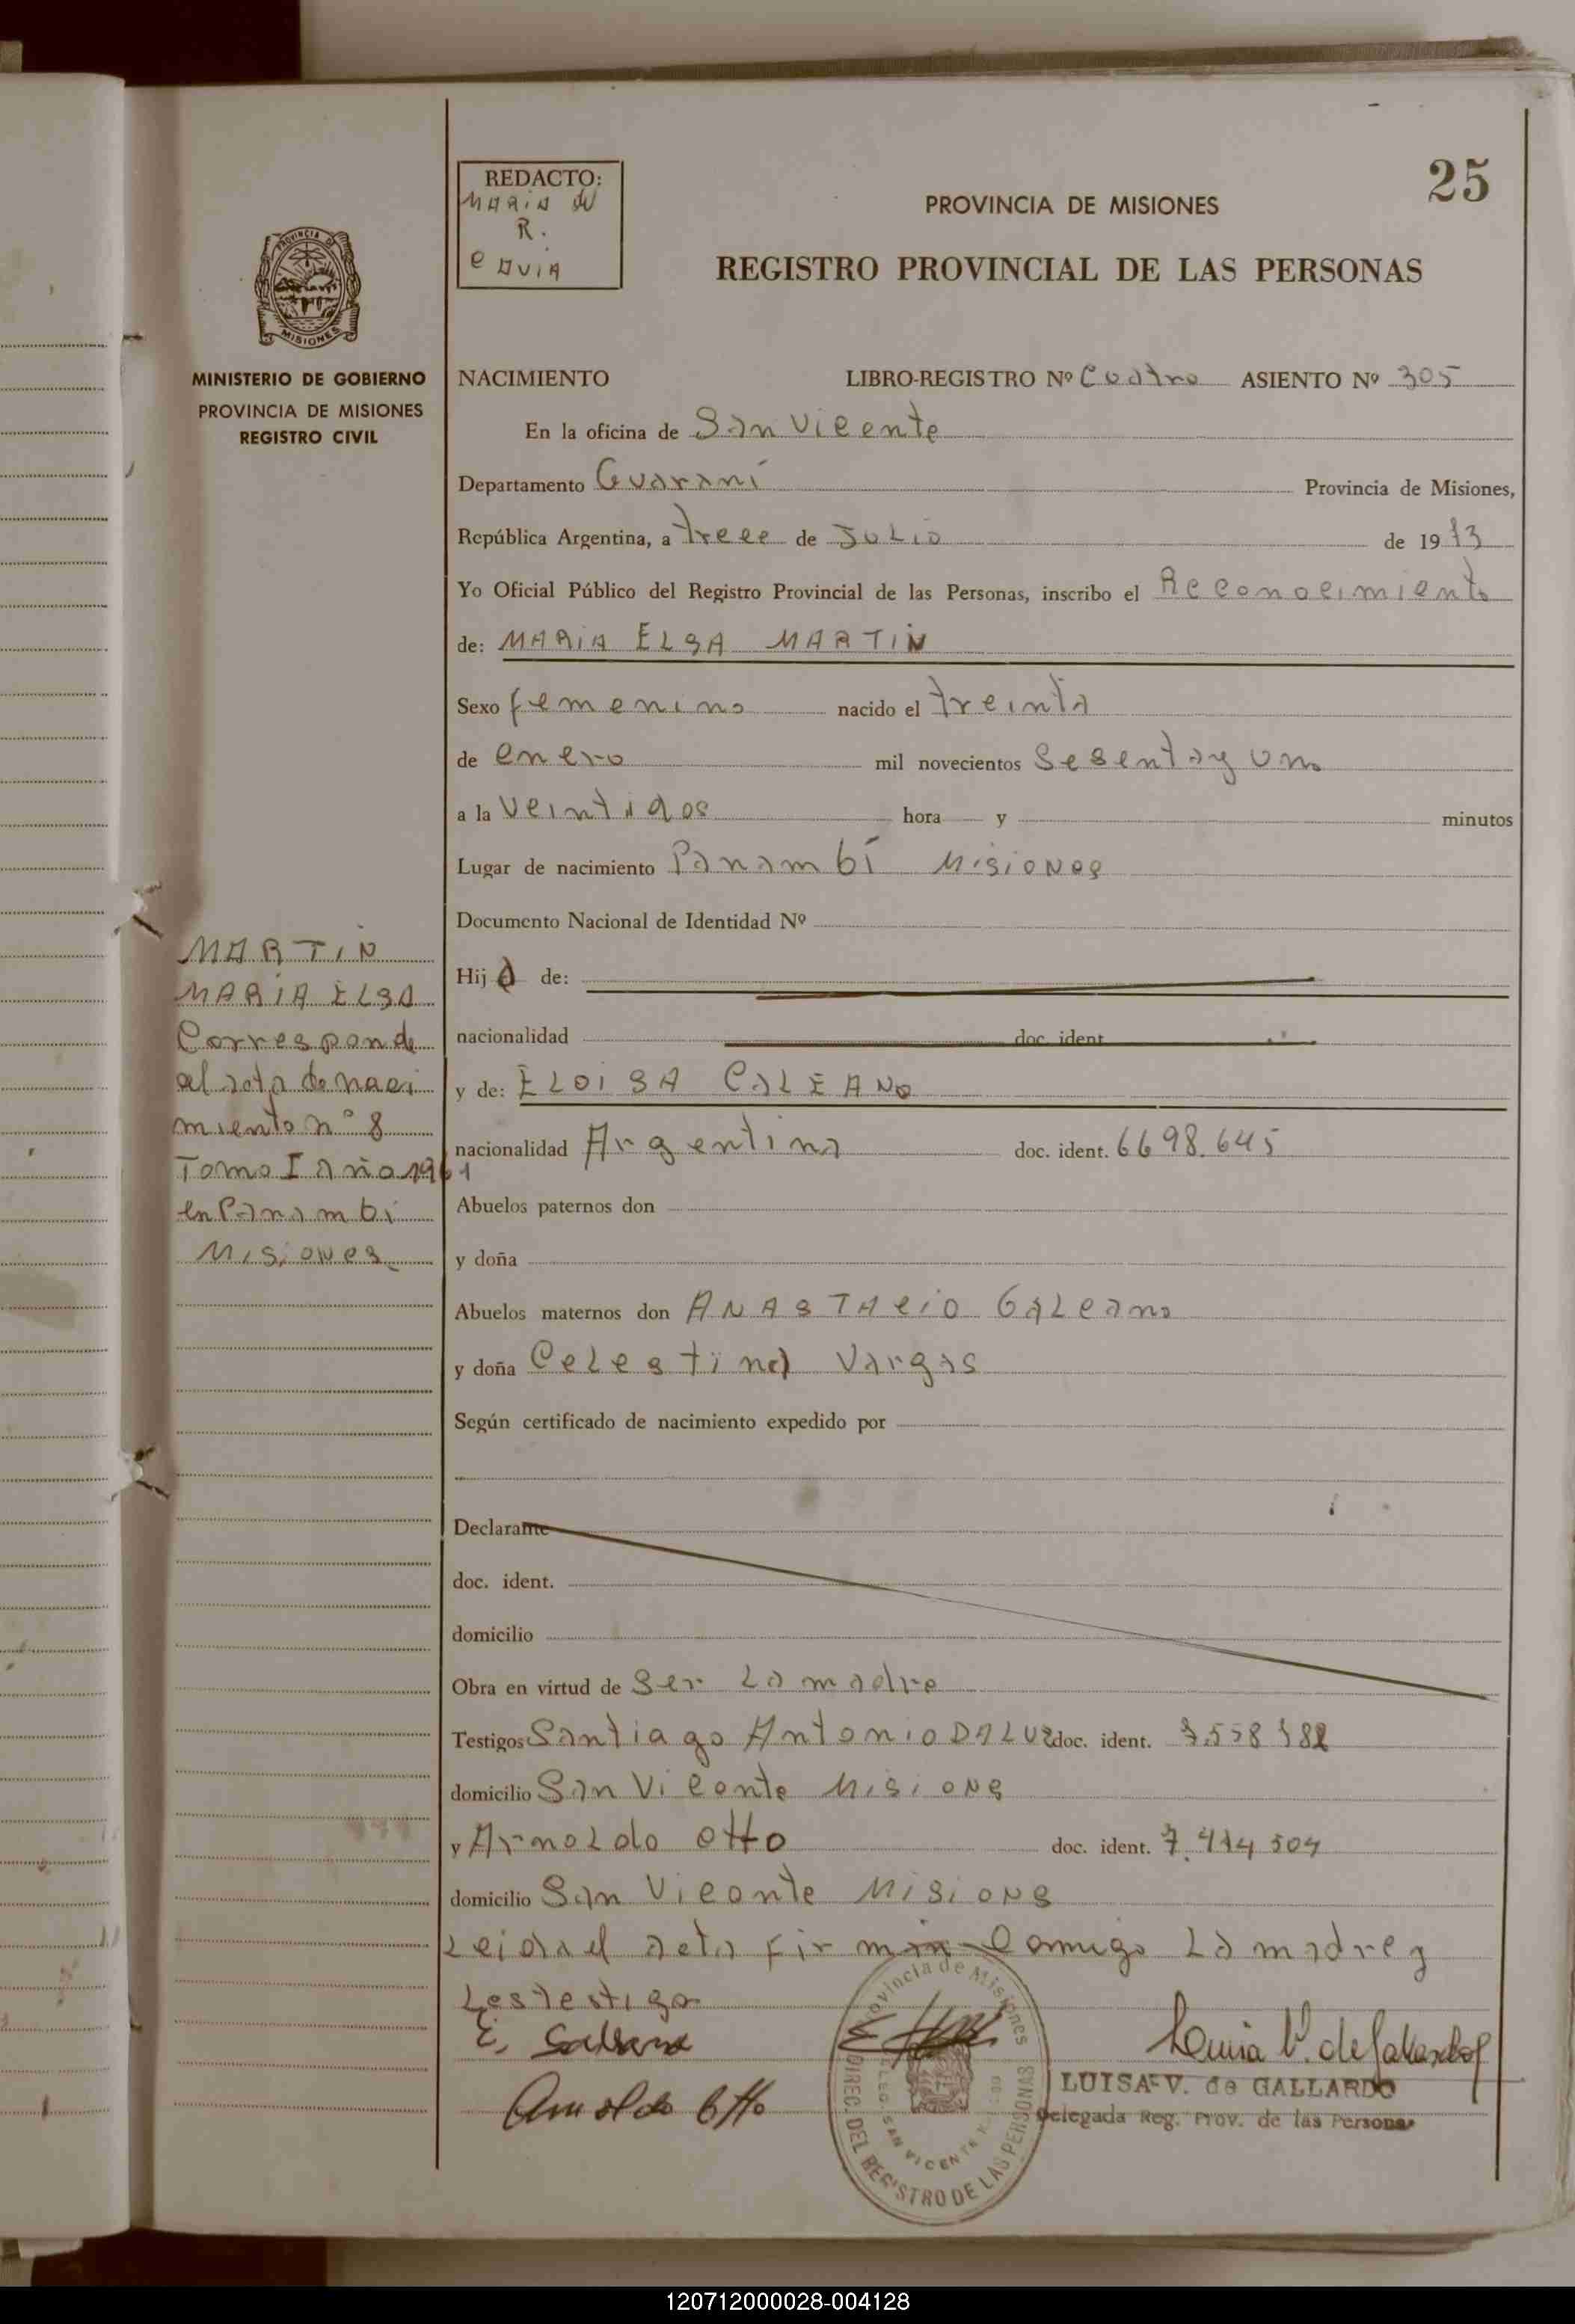 REDACTO:
MARIA
R.
25
PROVINCIA DE MISIONES
REGISTRO PROVINCIAL DE LAS PERSONAS
PROVINCIA DE
MISIONES
MINISTERIO DE GOBIERNO
PROVINCIA DE MISIONES
REGISTRO CIVIL
NACIMIENTO LIBRO-REGISTRO Nº Cuatro ASIENTO Nº 305
En la oficina de San Vicente
Departamento Guaraní Provincia de Misiones,
República Argentina, a trece de JULIO de 1973
Yo Oficial Público del Registro Provincial de las Personas, inscribo el Reconocimiento
de: MARIA ELSA MARTIN
Sexo femenino nacido el treinta
de enero mil novecientos Sesenta y uno
a la veintidos hora y minutos
Lugar de nacimiento Panambí Misiones
Documento Nacional de Identidad Nº
Hija de:
nacionalidad doc. ident.
y de: ELOISA GALEANO
nacionalidad Argentina doc. ident. 6698.645
Abuelos paternos don
y doña
Abuelos maternos don ANASTACIO GALeano
y doña Celestina Vargas
Según certificado de nacimiento expedido por
Declarante
doc. ident.
domicilio
Obra en virtud de Ser La madre
Testigos Santiago Antonio DALUZ doc. ident.
domicilio San Vicente Misions
y Arnoldo Otto doc. ident. 7.414 504
domicilio San Vicente Misions
Leida el acta firman comigo La madre y
Los testigo
MARTIN
MARIA ELSA
Corresponde
al acta de naci
miento nº 8
Tomo I año 1961
en Panambi
Misiones
Arnoldo Otto
Provincia de Misiones
DIREC. DEL REGISTRO DE LAS PERSONAS
LUISA V. de GALLARDO
Delegada Reg. Prov. de las Personas
120712000028-004128